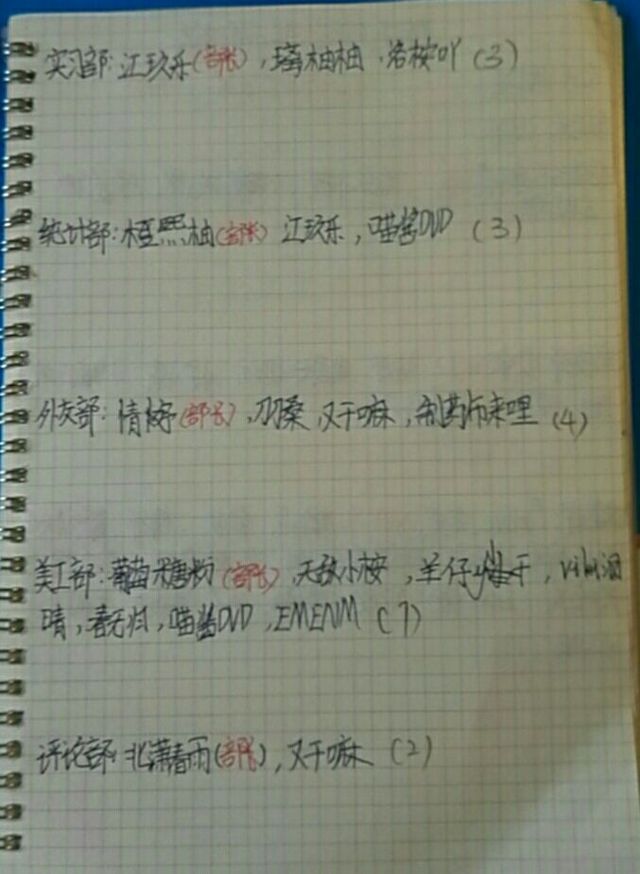 实习部:江玖乐(部长),璃柚柚,洛桉吖(3)
统计部:橙熙柚(部长) 江玖乐,喵酱DVD (3)
外交部:情梓(部长),刀桑,又干嘛,制药师来哩 (4)
美工部:葡萄糖粉(部长),天敌小桉,羊仔 干,
晴,春无归,喵酱DVD,EMENM (7)
评论部:北潇春雨(部长),又干嘛 (2)